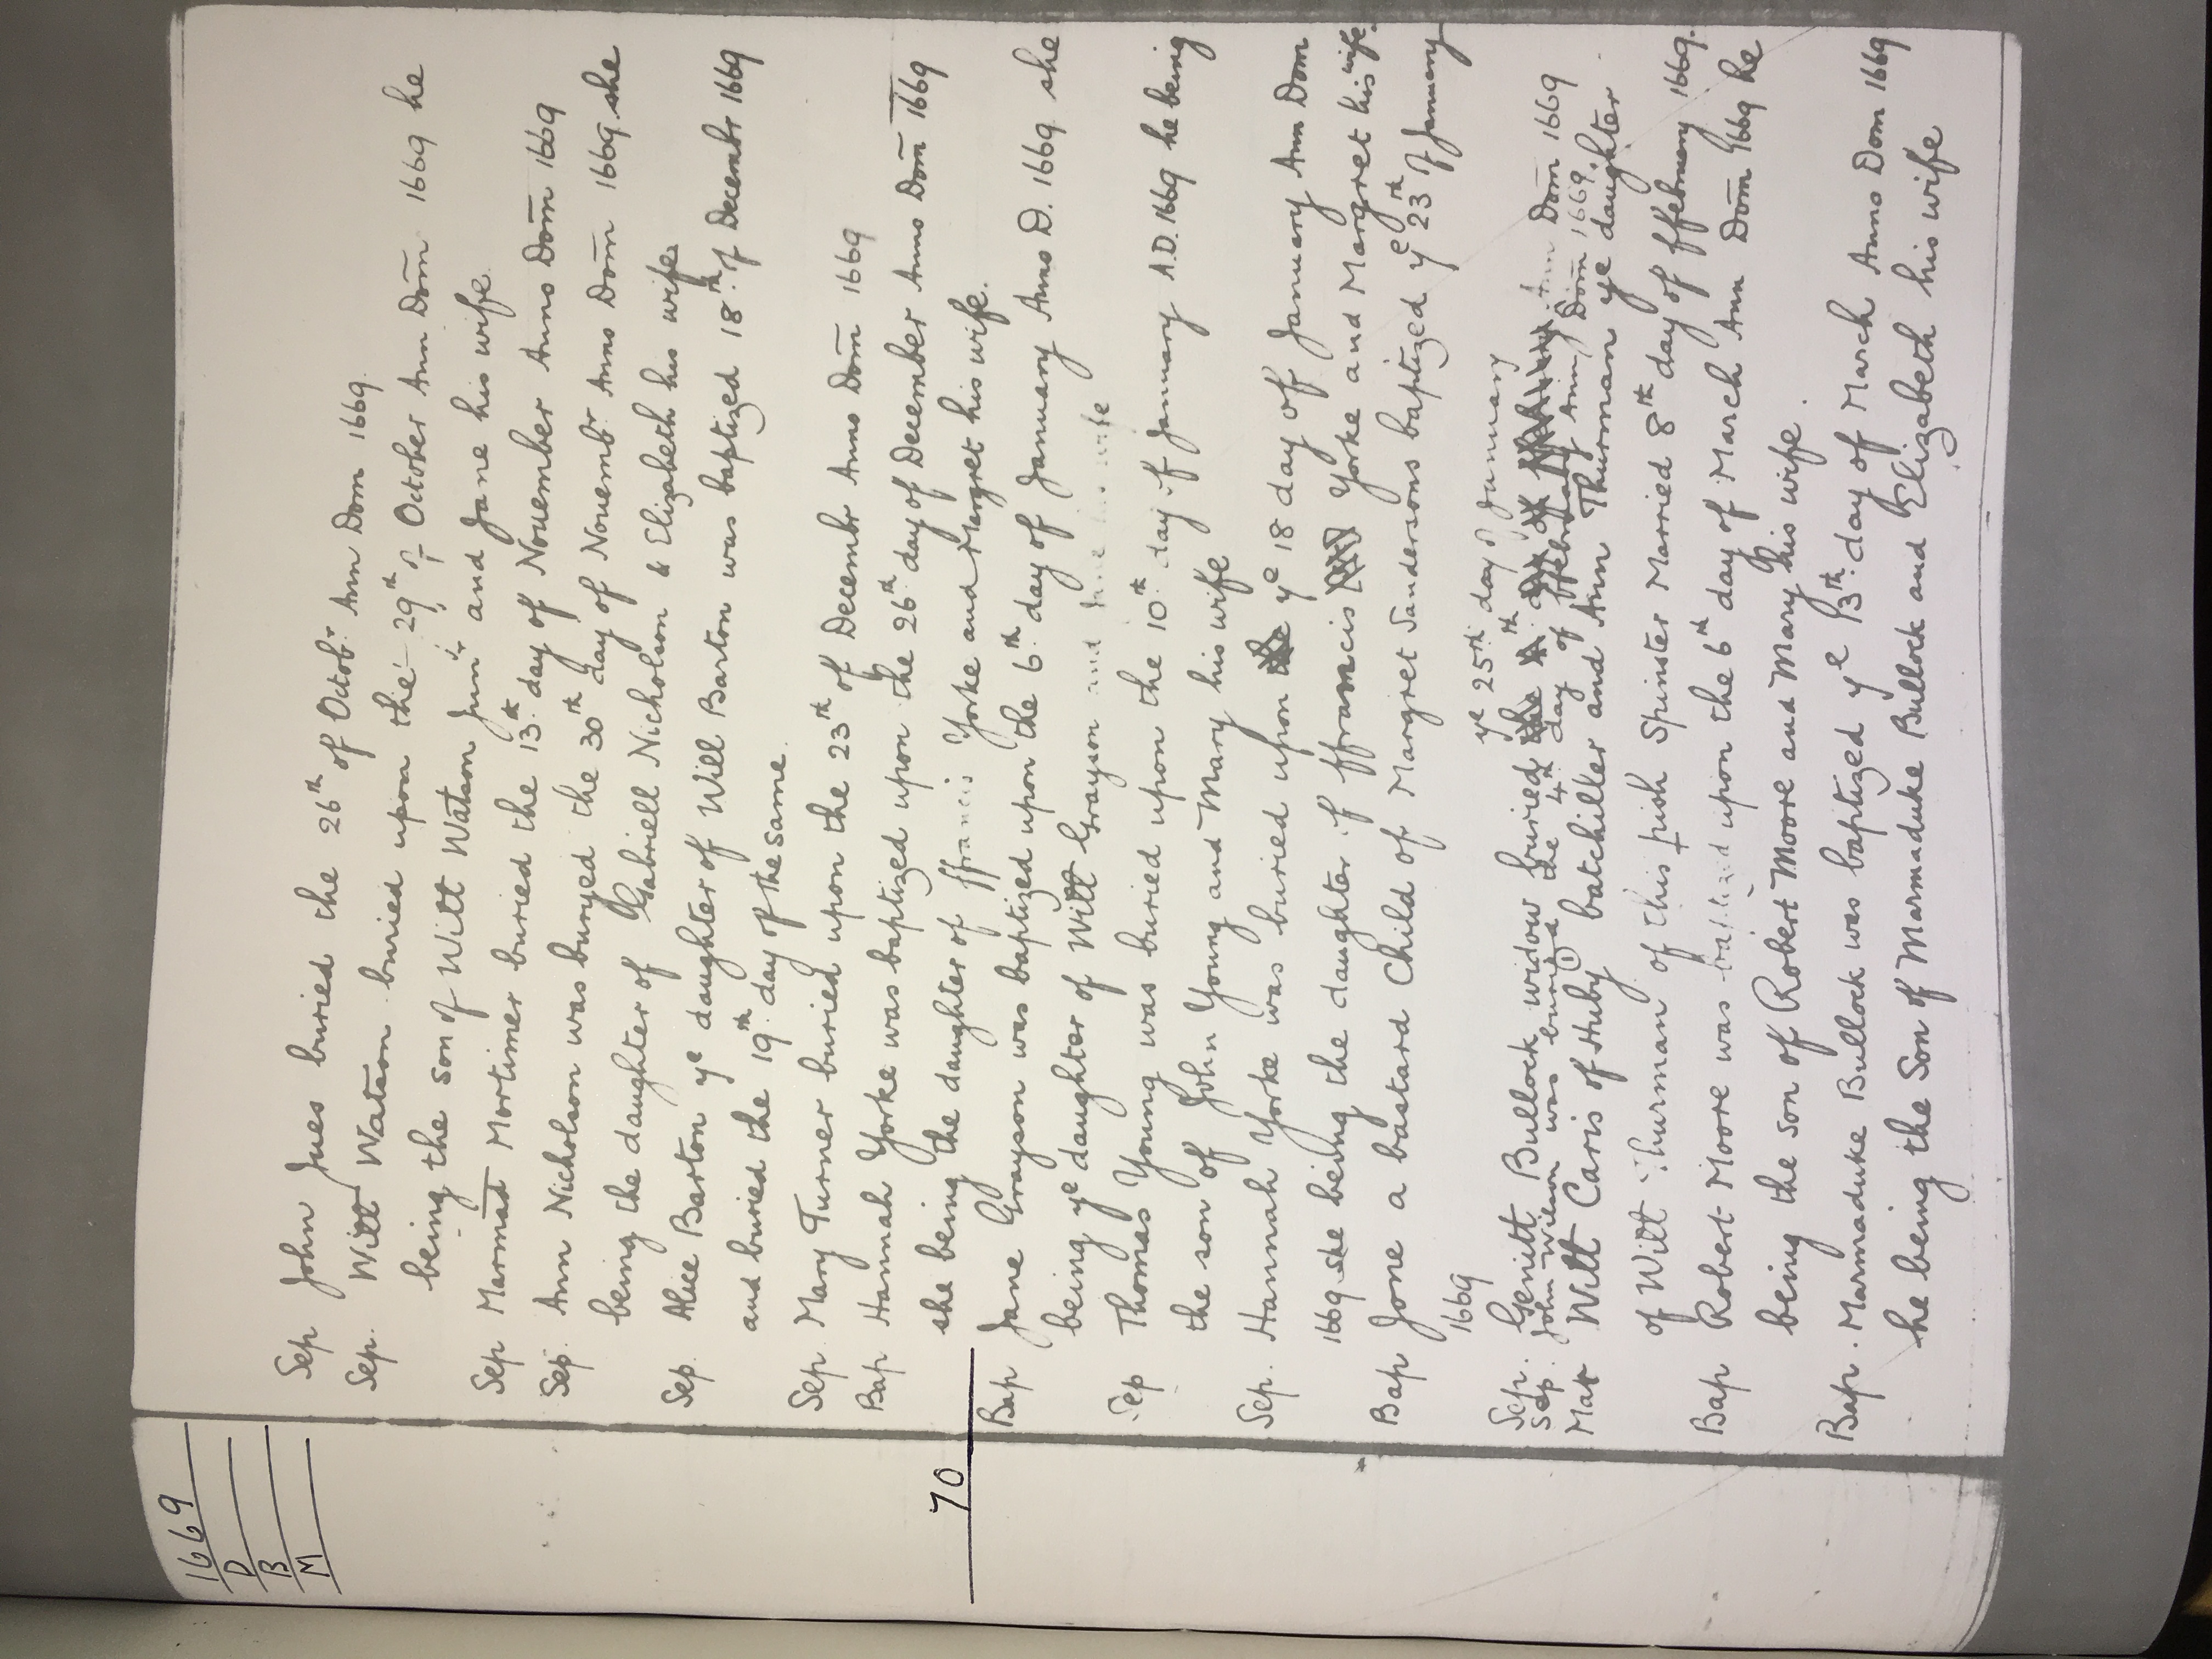 1669
D
B
M
70
Sep John Jues buried the 26th of Octobr Ann Dom 1669.
Sep. Willt Watson buried upon the 29th of October Ann Dom̄ 1669 he
being the son of Willt Watson Junr and Jane his wife.
Sep Marmad Mortimer buried the 13th day of Nouember Anno Dom̄ 1669
Sep. Ann Nicholson was buryed the 30th day of Nouembr Anno Dom̄ 1669 she
being the daughter of Gabriell Nicholson & Elizabeth his wife
Sep. Alice Barton ye daughter of Will Barton was baptized 18th of Decembr 1669
and buried the 19th day of the same.
Sep. Mary Turner buried upon the 23th of Decembr Anno Dom̄ 1669
Bap Hannah Yorke was baptized upon the 26th day of December Anno Dom̄ 1669
she being the daughter of ffrancis Yorke and Margret his wife.
Bap Jane Grayson was baptized upon the 6th day of January Anno D. 1669 she
being ye daughter of Willt Grayson and Jane his wife
Sep Thomas Young was buried upon the 10th day of January A.D. 1669 he being
the son of John Young and Mary his wife
Sep. Hannah Yorke was buried upon the ye 18 day of January Ann Dom
1669 she being the daughter of ffrancis Yorke and Margret his wife.
Bap Jone a bastard Child of Margret Sandersons baptized ye 23rd of January
1669
ye 25th day of January
Sep. Genitt Bullock widow buried Ann Dom̄ 1669
Sep. John Wilson was buried the 4th day of ffebruary Ann Dom̄ 1669.
Mar Willt Caris of Huby (?) batchiller and Ann Thurman ye daughter
of Willt Thurman of this pish Spinster Married 8th day of ffebruary 1669.
Bap Robert Moore was baptized upon the 6th day of March Ann Dom̄ 1669 he
being the son of Robert Moore and Mary his wife.
Bap. Marmaduke Bullock was baptized ye 13th day of March Anno Dom 1669
he being the Son of Marmaduke Bullock and Elizabeth his wife